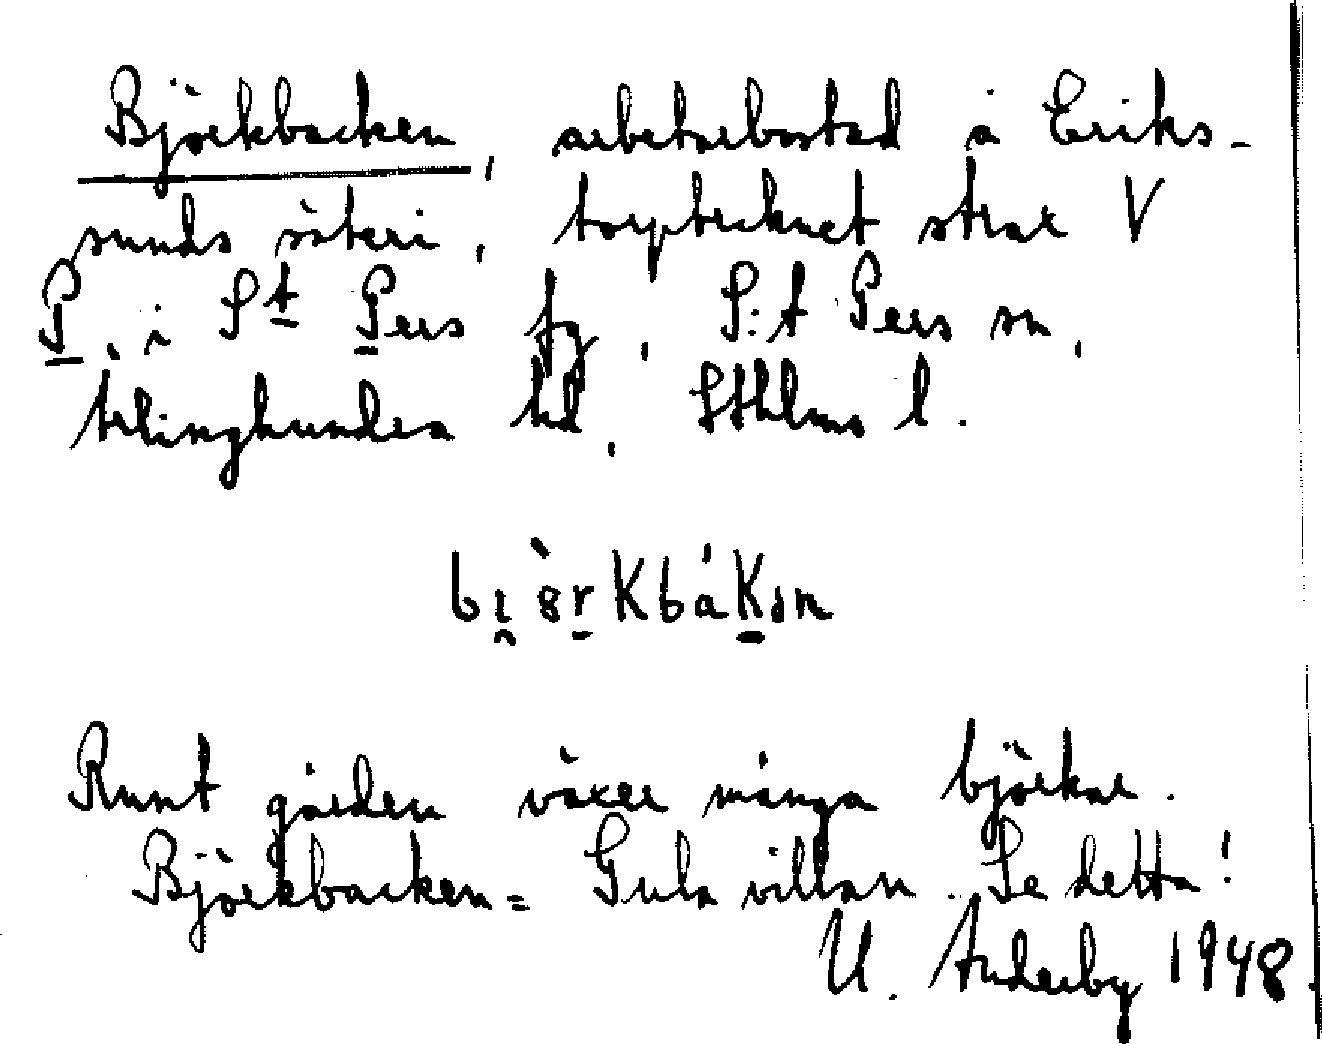 Björkbacken, arbetarbostad å Eriks-
sunds säteri, torptecknet strax V
P, i St Pers fg, S:t Pers sn,
Ärlinghundra hd, Sthlms l.
Runt gården växer många björkar.
Björkbacken = Gula villan. Se detta!
U. 1948.